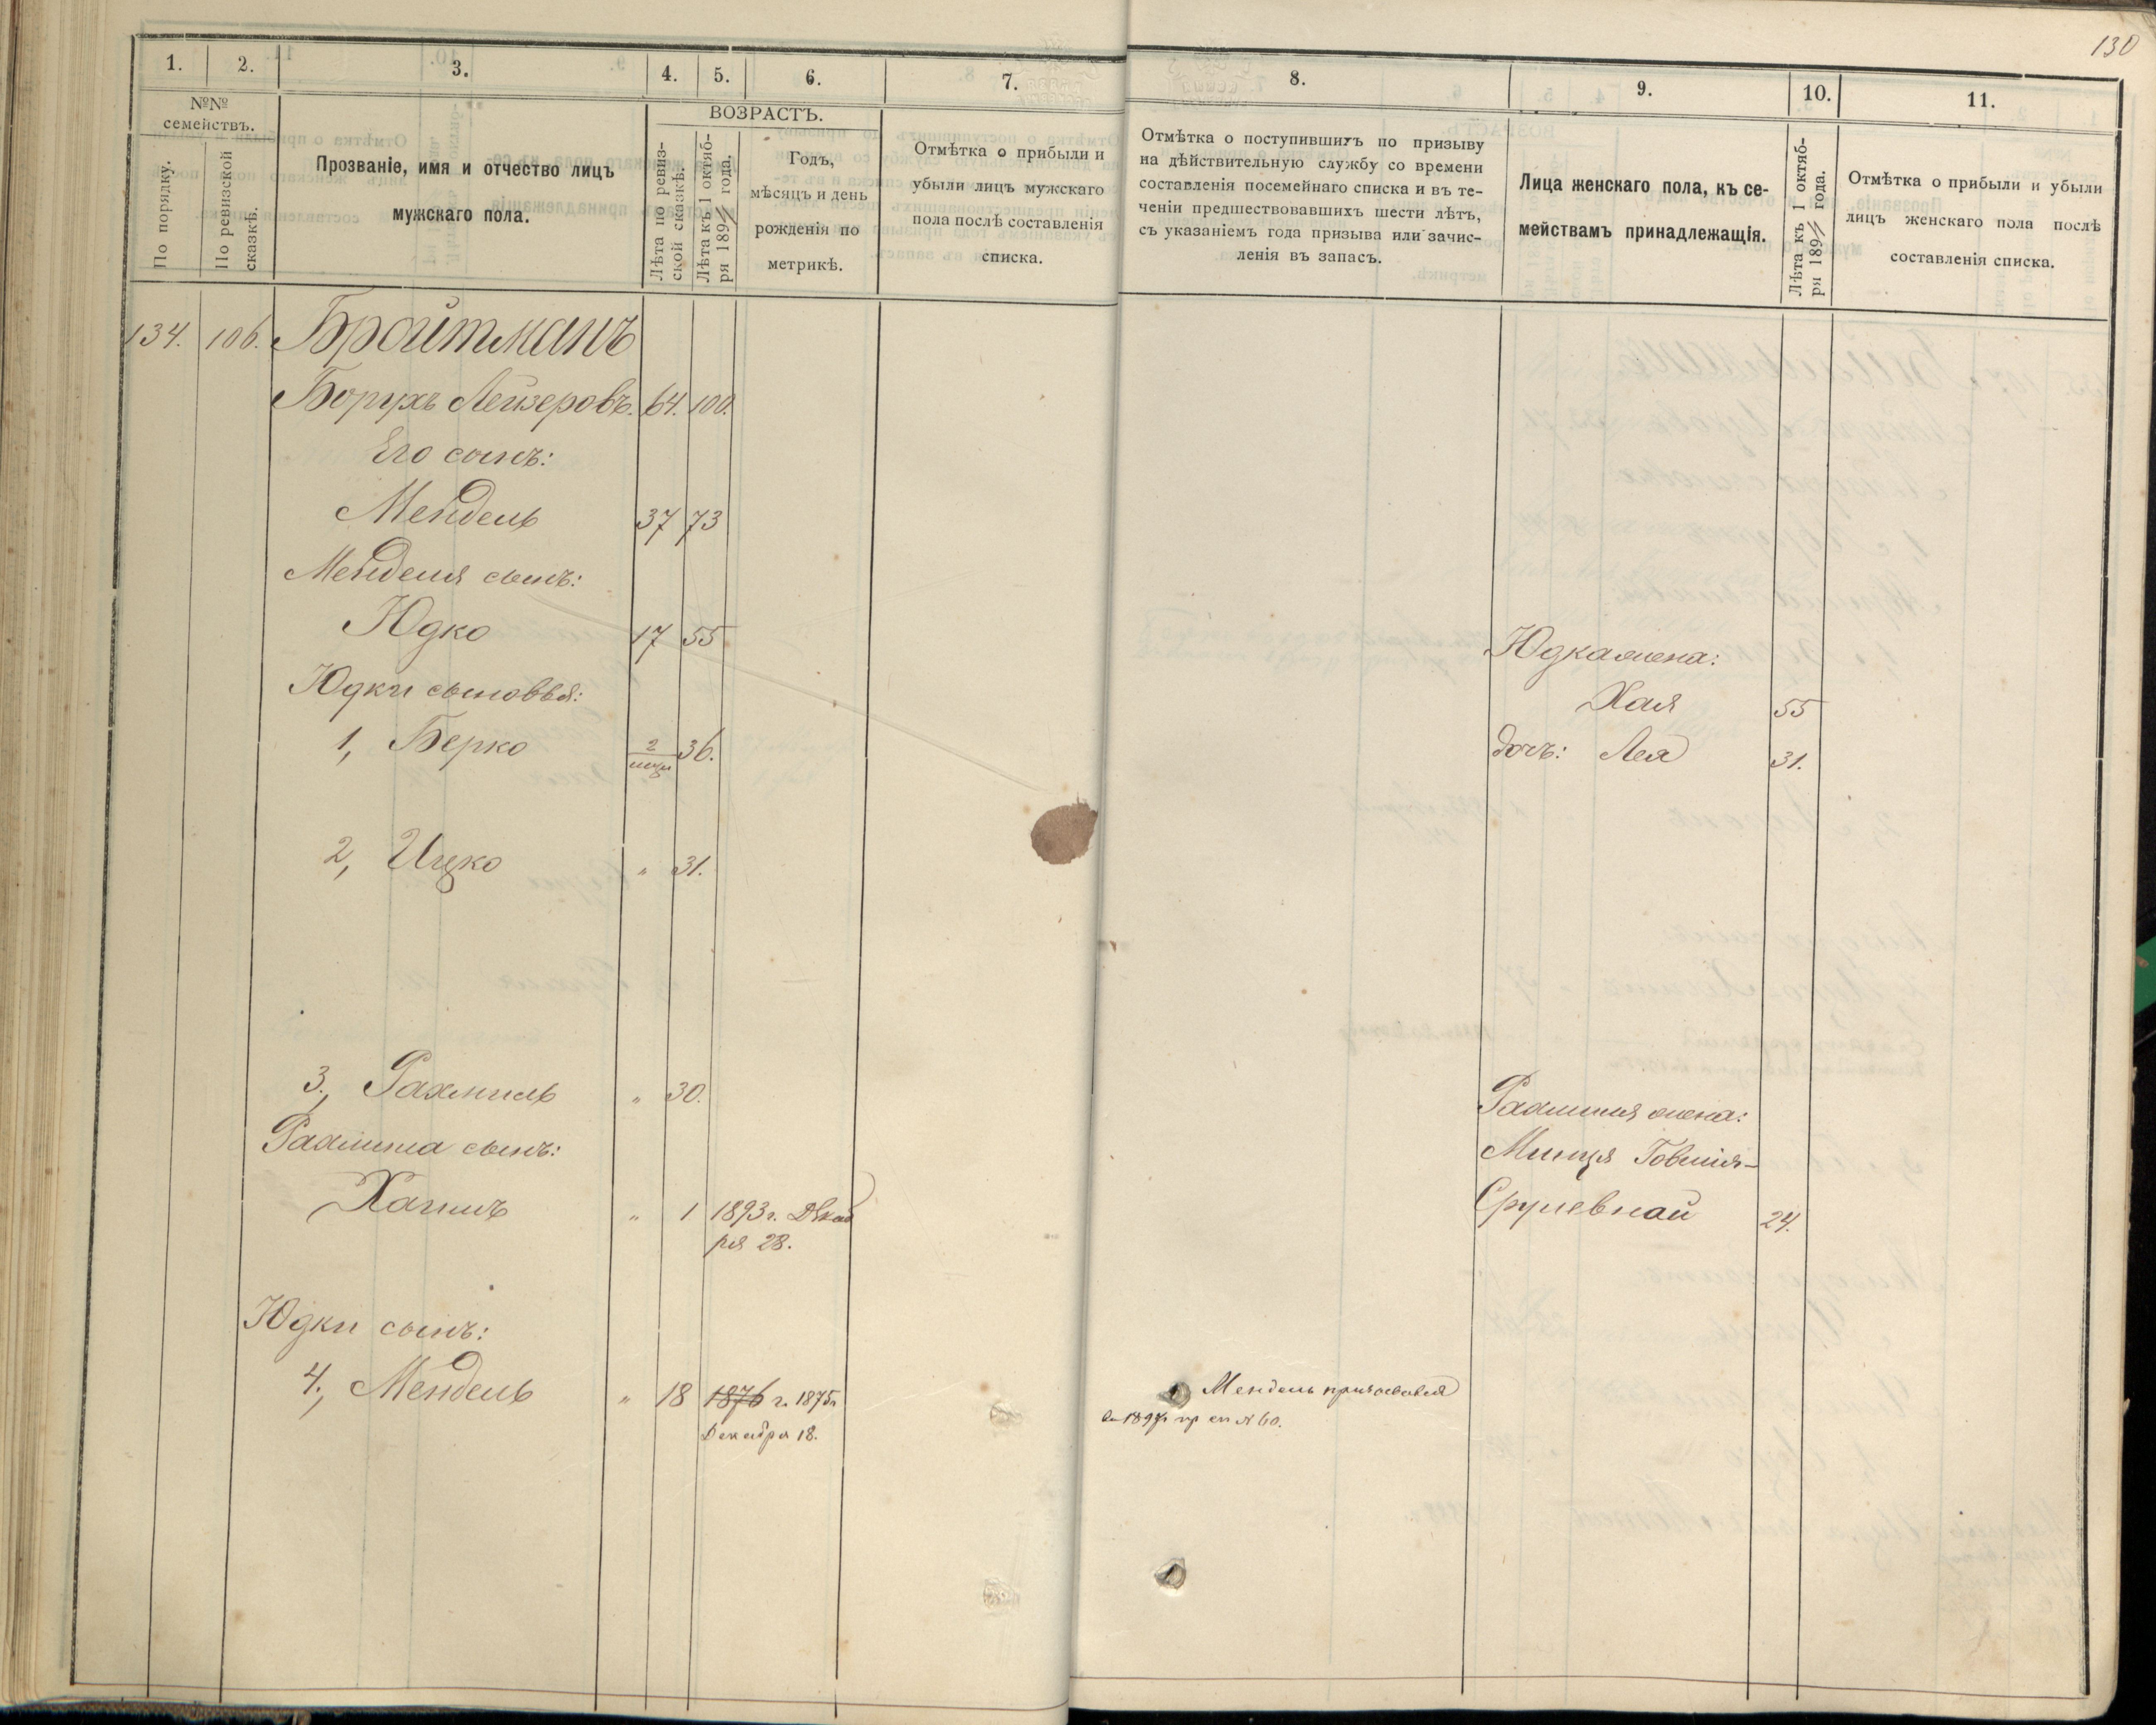 130
1. 2. 3. 4. 5. 6. 7. 8. 9. 10. 11.
№№ семействъ.
По порядку.
По ревизской сказкѣ.
Прозваніе, имя и отчество лицъ
мужскаго пола.
ВОЗРАСТЪ.
Лѣта по ревиз-
ской сказкѣ.
Лѣта къ 1 октяб-
ря 189 года.
Годъ,
мѣсяцъ и день
рожденія по
метрикѣ.
Отмѣтка о прибыли и
убыли лицъ мужскаго
пола послѣ составленія
списка.
Отмѣтка о поступившихъ по призыву
на дѣйствительную службу со времени
составленія посемейнаго списка и въ те-
ченіи предшествовавшихъ шести лѣтъ,
съ указаніемъ года призыва или зачис-
ленія въ запасъ.
Лица женскаго пола, къ се-
мействамъ принадлежащія.
Лѣта къ 1 октяб-
ря 189 года.
Отмѣтка о прибыли и убыли
лицъ женскаго пола послѣ
составленія списка.
134. 106. Бройтманъ
Борухъ Лейзеровъ. 64. 100.
Его сынъ:
Мендель 37 73
Менделя сынъ:
Юдко 17 55
Юдки сыновья:
1, Берко 2 36.
2, Ицко " 31.
3, Рахмиль " 30.
Рахмиля сынъ:
Хаимъ " 1 1893 г. Декаб
ря 28.
Юдки сынъ:
4, Мендель " 18 1876 г. 1875 г.
Декабря 18.
Мендель призывался
въ 1897 г. пр сп № 60.
Юдка жена:
Хая 55
дочь: Лея 31.
Рахмиля жена:
Минця
Срулевной 24.